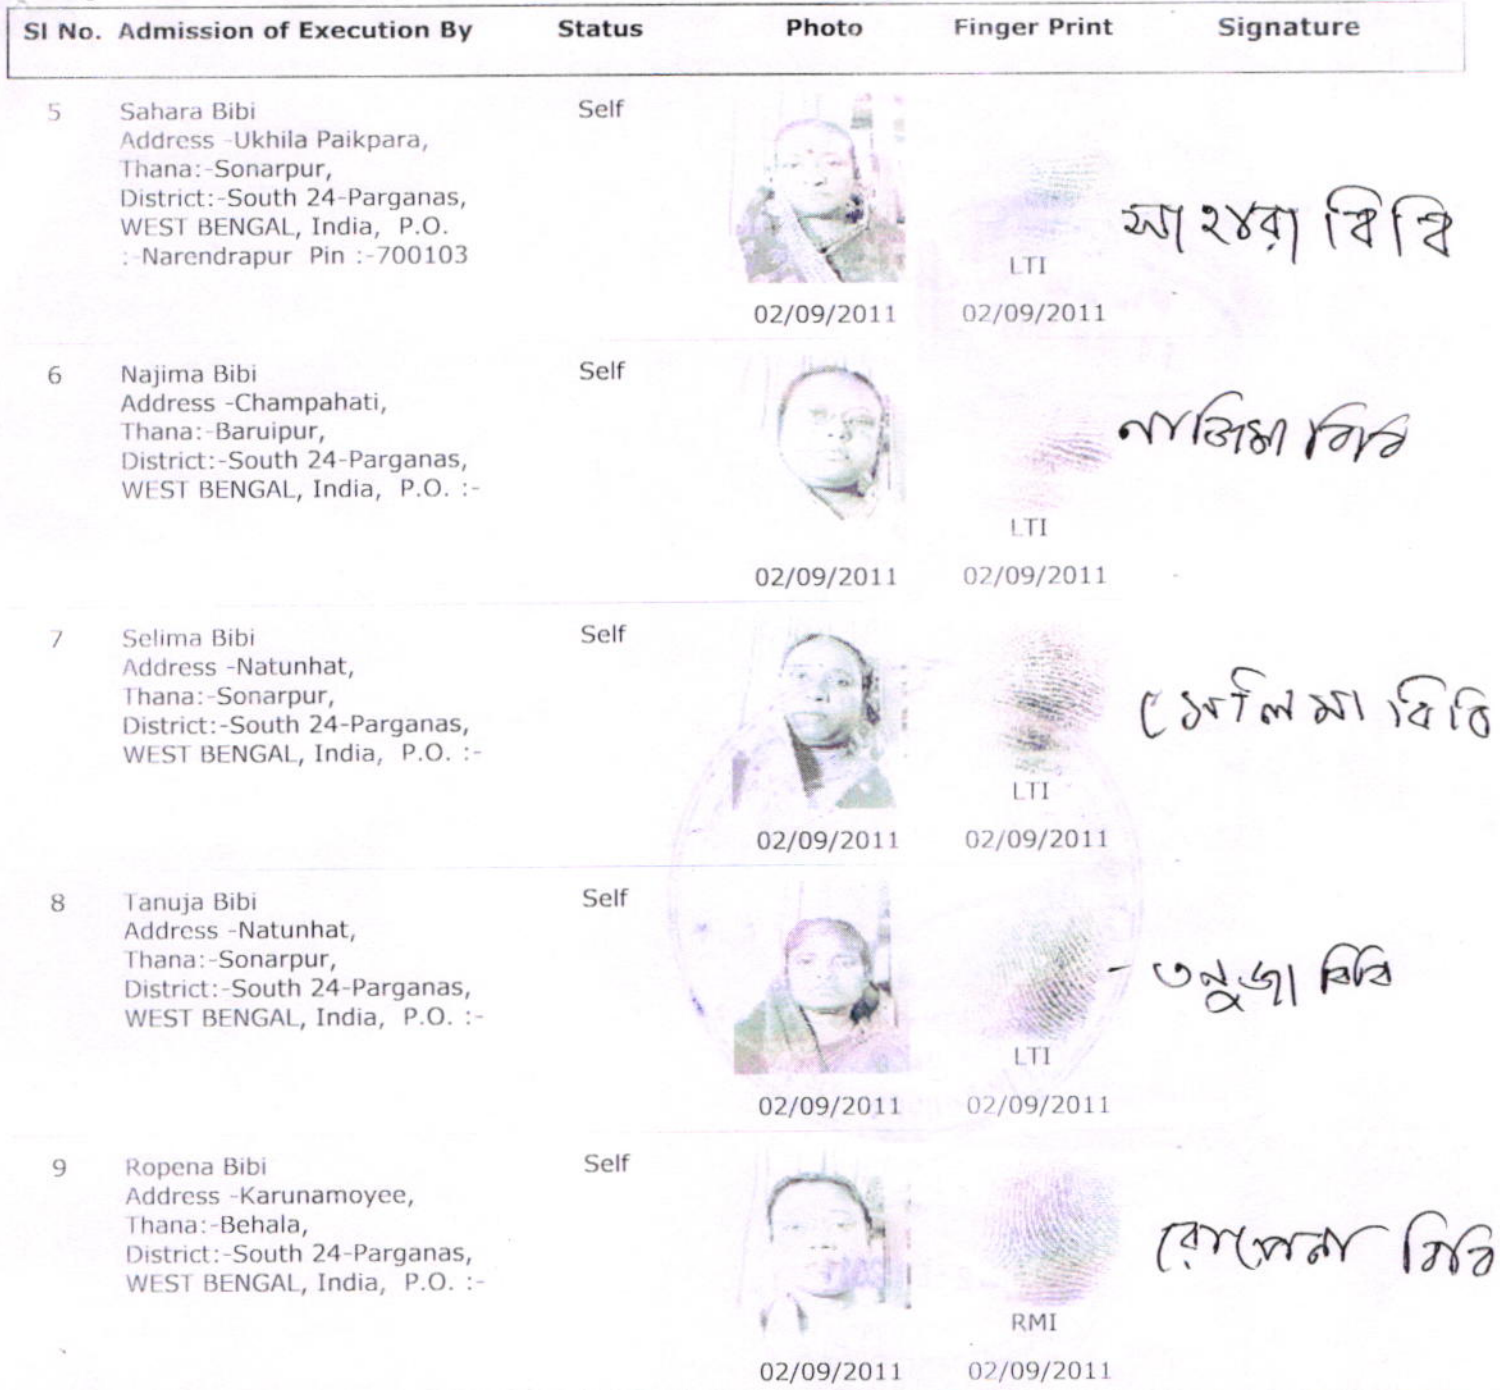 Sl No. Admission of Execution By Status Photo Finger Print Signature
5 Sahara Bibi Self
Address -Ukhila Paikpara,
Thana:-Sonarpur,
District:-South 24-Parganas,
WEST BENGAL, India, P.O.
:-Narendrapur Pin :-700103
LTI
সাহারা বিবি
02/09/2011 02/09/2011
6 Najima Bibi Self
Address -Champahati,
Thana:-Baruipur,
District:-South 24-Parganas,
WEST BENGAL, India, P.O. :-
নাজিমা বিবি
LTI
02/09/2011 02/09/2011
7 Selima Bibi Self
Address -Natunhat,
Thana:-Sonarpur,
District:-South 24-Parganas,
WEST BENGAL, India, P.O. :-
সেলিমা বিবি
LTI
02/09/2011 02/09/2011
8 Tanuja Bibi Self
Address -Natunhat,
Thana:-Sonarpur,
District:-South 24-Parganas,
WEST BENGAL, India, P.O. :-
তনুজা বিবি
LTI
02/09/2011 02/09/2011
9 Ropena Bibi Self
Address -Karunamoyee,
Thana:-Behala,
District:-South 24-Parganas,
WEST BENGAL, India, P.O. :-
রোপেনা বিবি
RMI
02/09/2011 02/09/2011